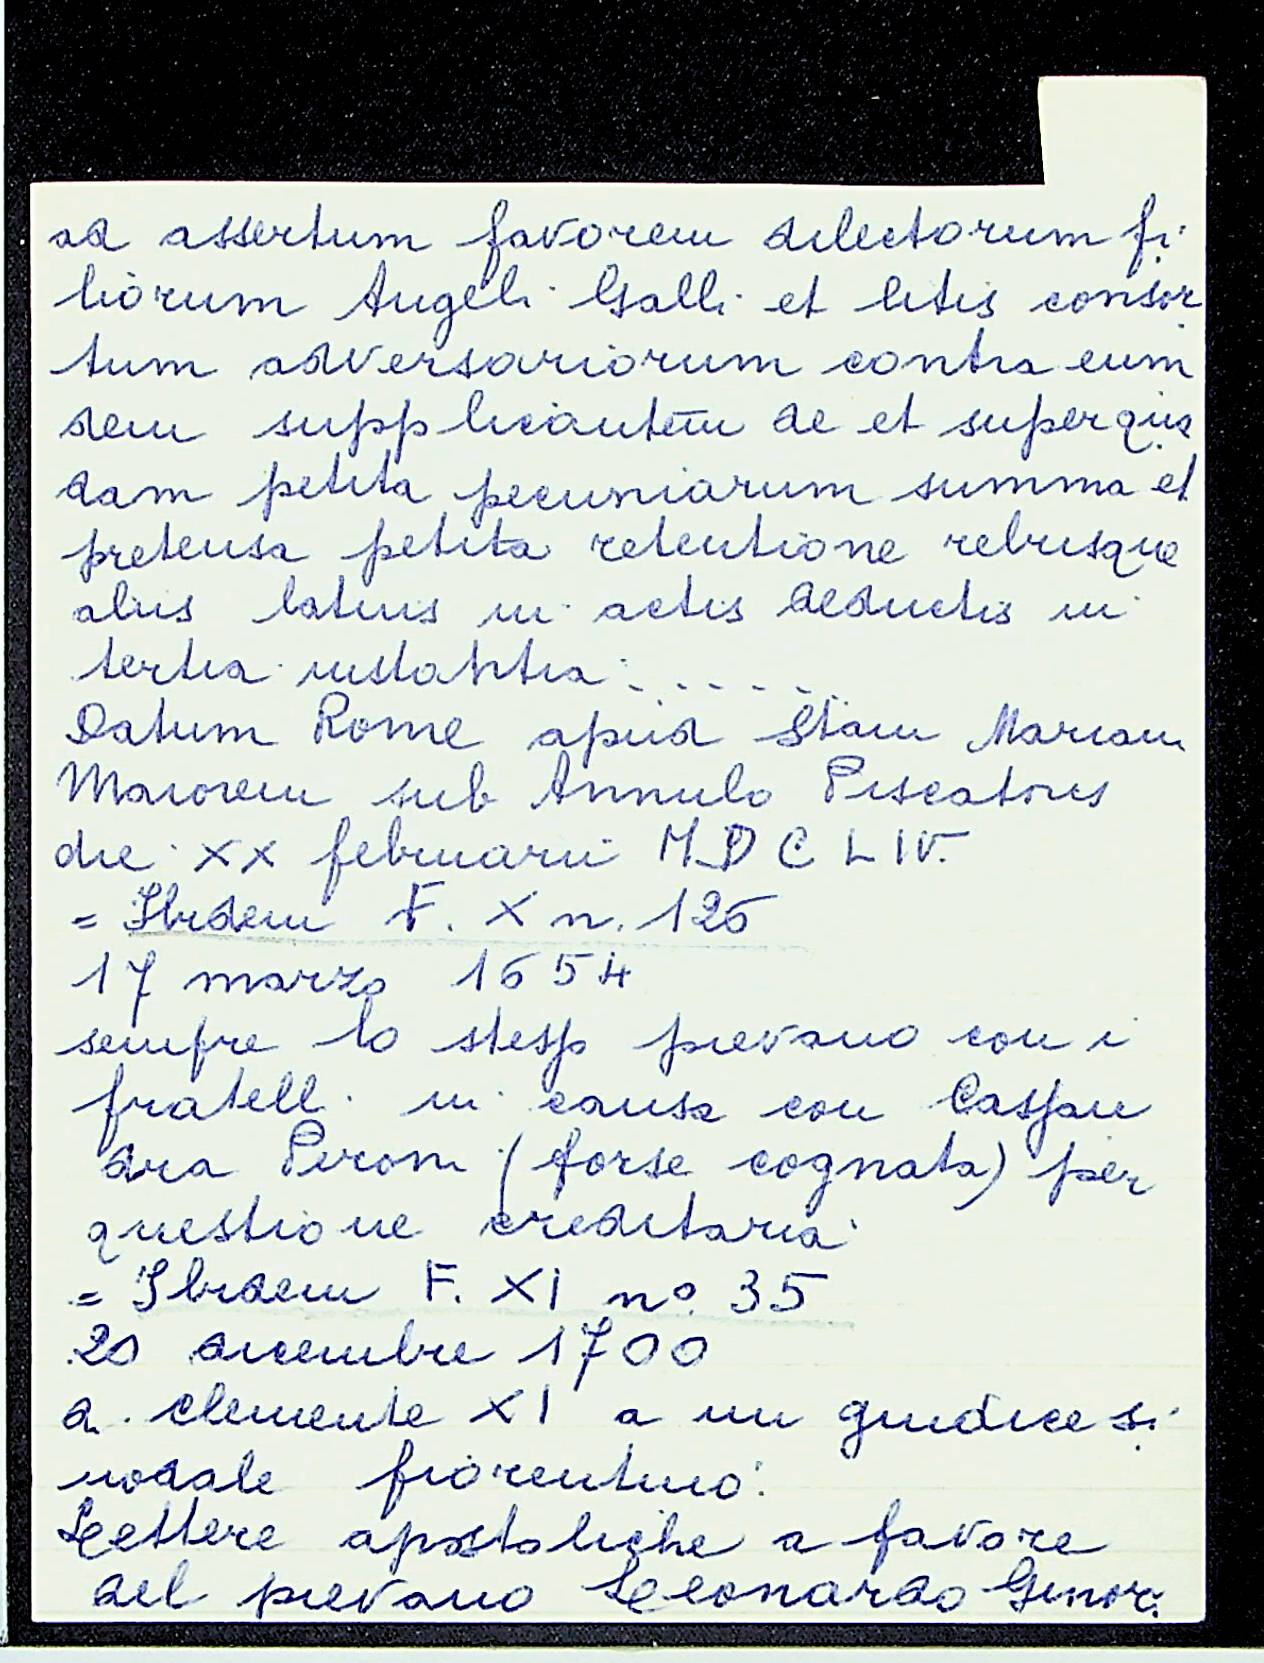 ad assertum favorem dilectorum fi-
liorum Angeli Galli et litis consor
tum adversariorum contra eum
dem supplicantem de et super qua
dam petita pecuniarum summa et
pretensa petita retentione rebusque
aliis latius in actis deductis in
tertia instantia: ......
Datum Rome apud Stam Mariam
Maiorem sub Annulo Piscatoris
die XX februarii MDCLIV.
= Ibidem F. X n. 126
17 marzo 1654
sempre lo stesso pievano con i
fratelli in causa con Cassan
dra Peroni (forse cognata) per
questione ereditaria
= Ibidem F. XI n° 35
20 dicembre 1700
a. Clemente XI a un giudice si-
nodale fiorentino:
Lettere apostoliche a favore
del pievano Leonardo Ginori